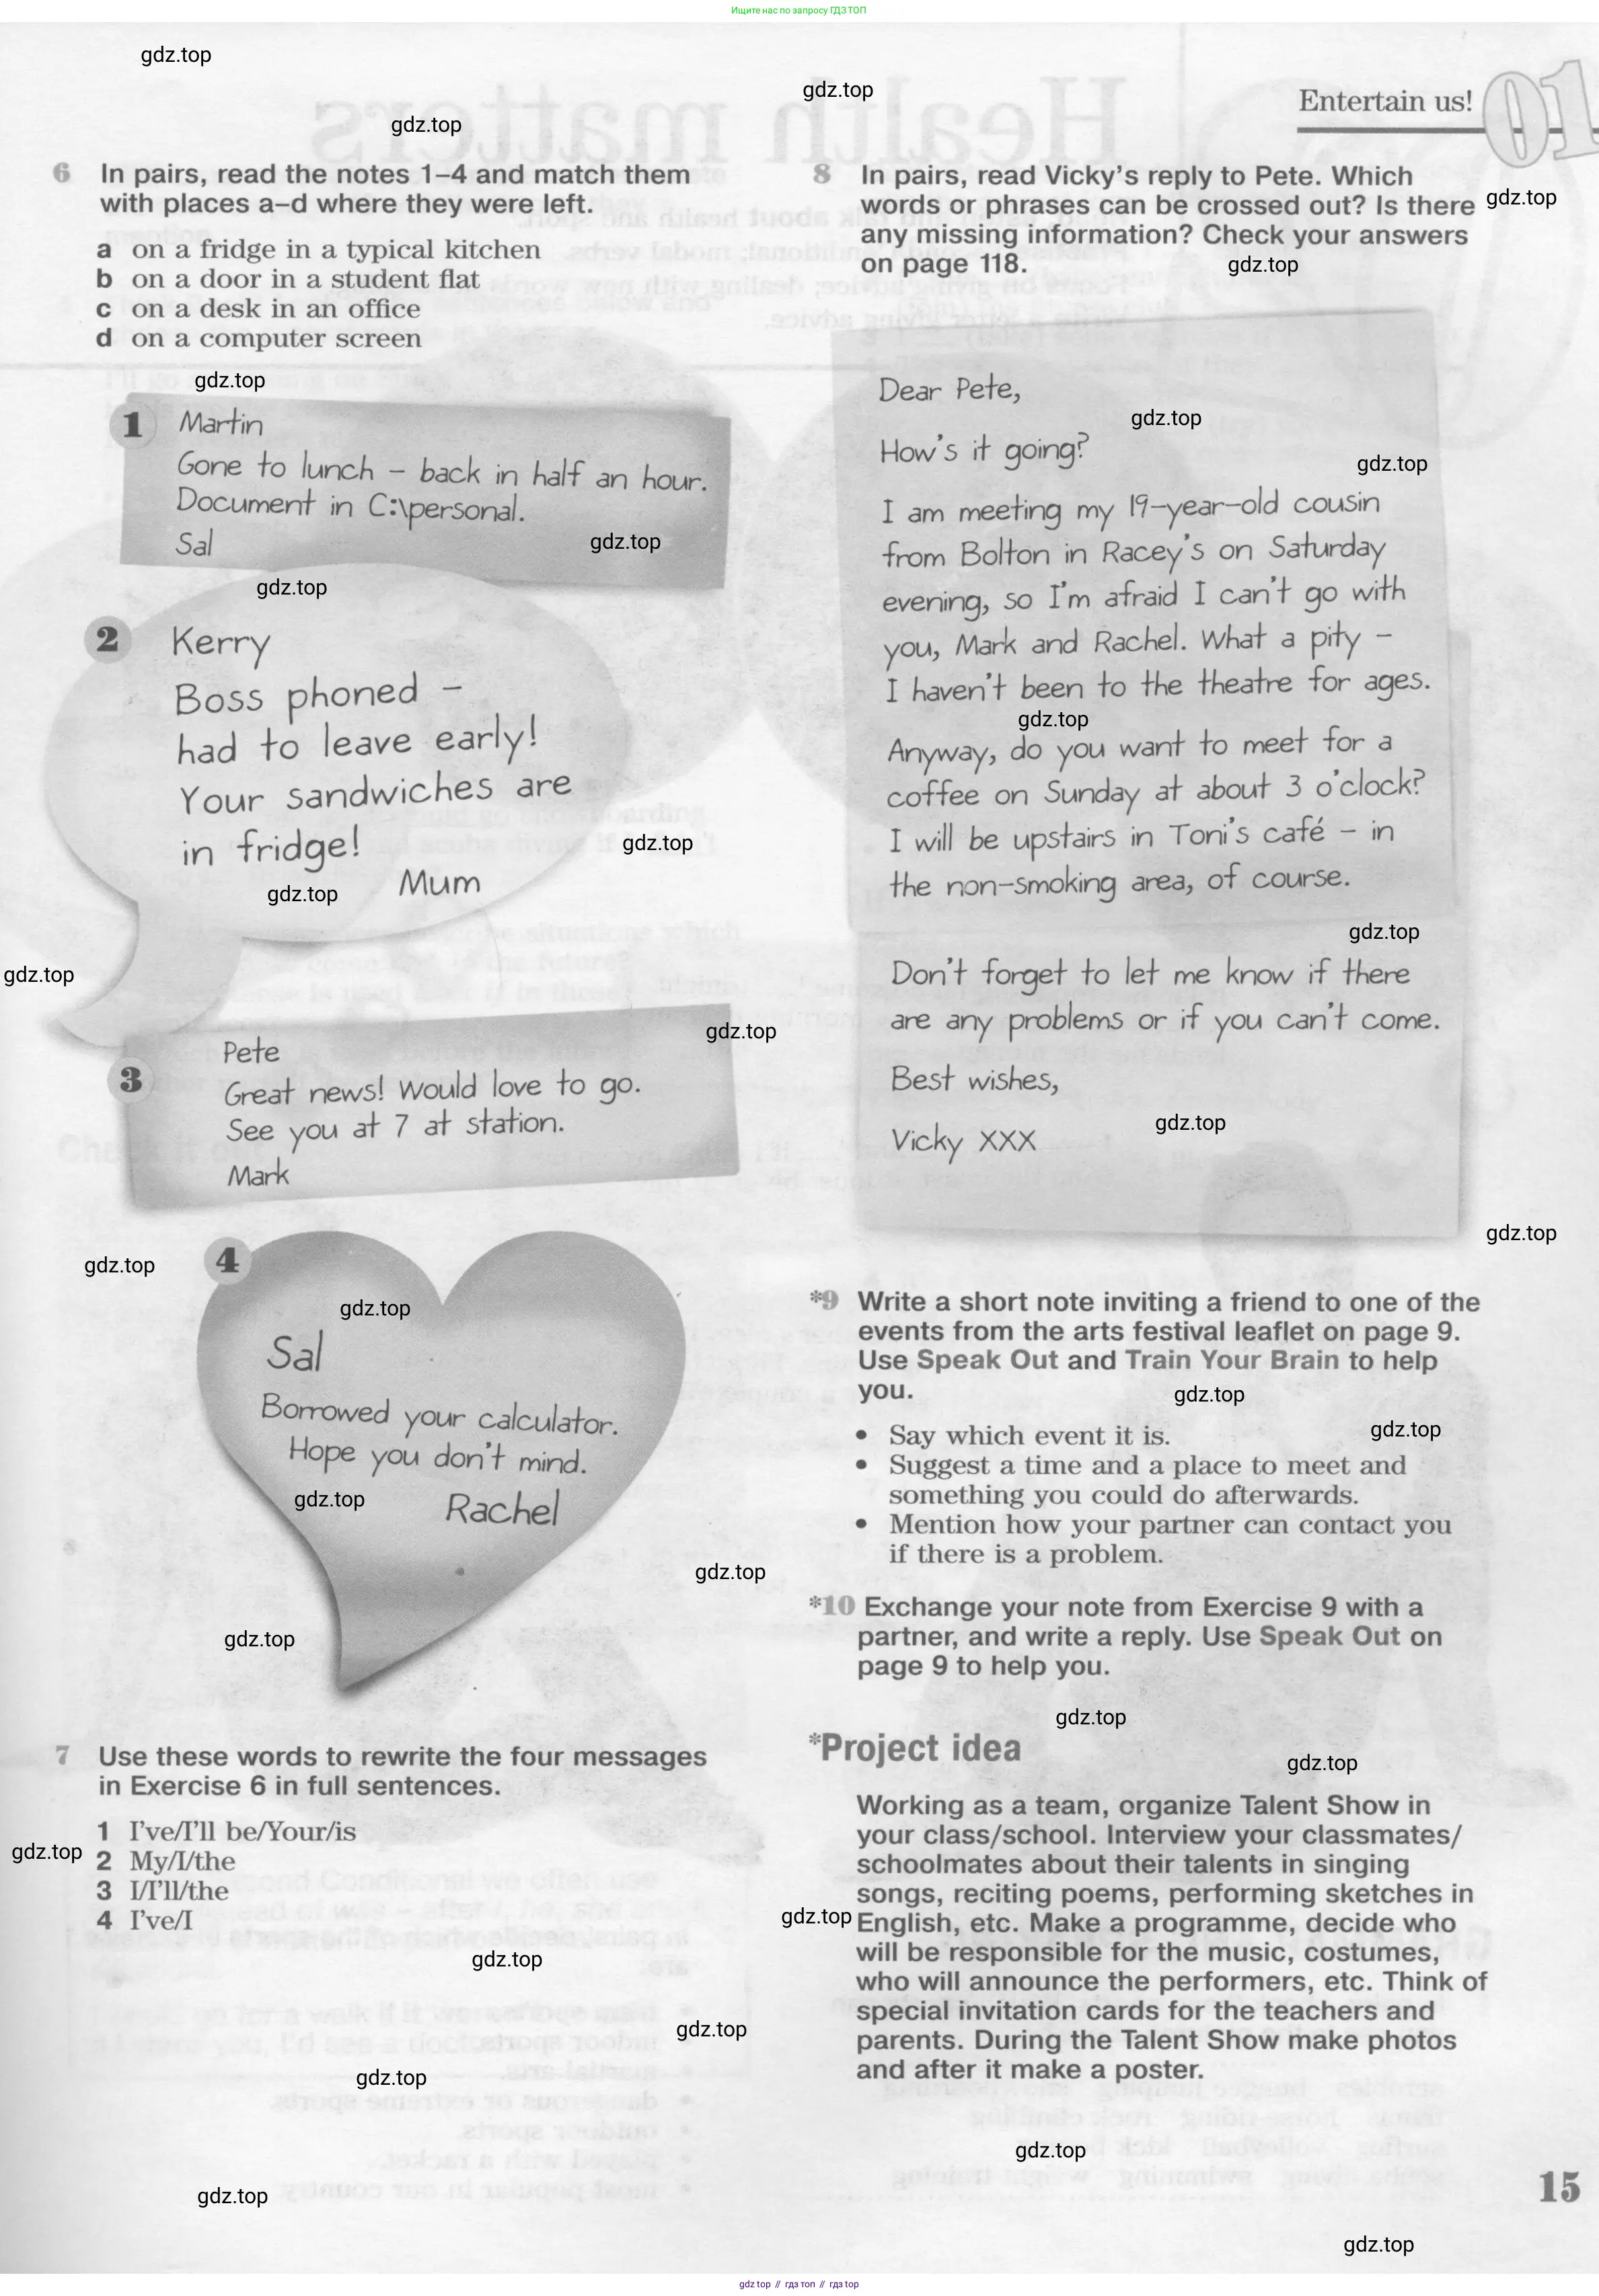 Ищите нас по запросу ГДЗ ТОП
gdz.top
gdz.top
gdz.top
Entertain us!
01
6 In pairs, read the notes 1–4 and match them
with places a–d where they were left.
a on a fridge in a typical kitchen
b on a door in a student flat
c on a desk in an office
d on a computer screen
gdz.top
1
Martin
Gone to lunch – back in half an hour.
Document in C:\personal.
Sal
gdz.top
gdz.top
2
Kerry
Boss phoned –
had to leave early!
Your sandwiches are
in fridge!
Mum
gdz.top
gdz.top
gdz.top
gdz.top
3
Pete
Great news! Would love to go.
See you at 7 at station.
Mark
gdz.top
4
gdz.top
Sal
Borrowed your calculator.
Hope you don't mind.
Rachel
gdz.top
gdz.top
gdz.top
7 Use these words to rewrite the four messages
in Exercise 6 in full sentences.
1 I've/I'll be/Your/is
2 My/I/the
3 I/I'll/the
4 I've/I
gdz.top
gdz.top
gdz.top
gdz.top
gdz.top
8 In pairs, read Vicky's reply to Pete. Which
words or phrases can be crossed out? Is there
any missing information? Check your answers
on page 118.
gdz.top
gdz.top
Dear Pete,
gdz.top
How's it going?
gdz.top
I am meeting my 19-year-old cousin
from Bolton in Racey's on Saturday
evening, so I'm afraid I can't go with
you, Mark and Rachel. What a pity –
I haven't been to the theatre for ages.
gdz.top
Anyway, do you want to meet for a
coffee on Sunday at about 3 o'clock?
I will be upstairs in Toni's café – in
the non-smoking area, of course.
gdz.top
Don't forget to let me know if there
are any problems or if you can't come.
Best wishes,
gdz.top
Vicky XXX
gdz.top
*9 Write a short note inviting a friend to one of the
events from the arts festival leaflet on page 9.
Use Speak Out and Train Your Brain to help
you.
gdz.top
gdz.top
• Say which event it is.
• Suggest a time and a place to meet and
something you could do afterwards.
• Mention how your partner can contact you
if there is a problem.
*10 Exchange your note from Exercise 9 with a
partner, and write a reply. Use Speak Out on
page 9 to help you.
gdz.top
*Project idea
gdz.top
Working as a team, organize Talent Show in
your class/school. Interview your classmates/
schoolmates about their talents in singing
songs, reciting poems, performing sketches in
gdz.top
English, etc. Make a programme, decide who
will be responsible for the music, costumes,
who will announce the performers, etc. Think of
special invitation cards for the teachers and
parents. During the Talent Show make photos
and after it make a poster.
gdz.top
15
gdz.top
gdz top // гдз топ // гдз top